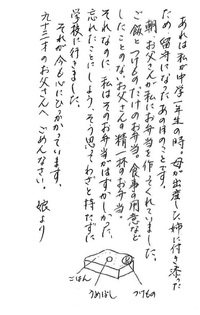 あれは私が中学一年生の時。母が出産した姉に付き添った
ため留守になったあの日のことです。
朝お父さんが私にお弁当を作ってくれていました。
ご飯とつけものだけのお弁当。食事の用意など
したことのないお父さんの精一杯のお弁当。
それなのに私はそのお弁当がはずかしかった。
忘れたことにしよう、そう思ってわざと持たずに
学校に行きました。
それが今も心にひっかかています。
九十三才のお父さんへ ごめんなさい。 娘より
ごはん
うめぼし
つけもの